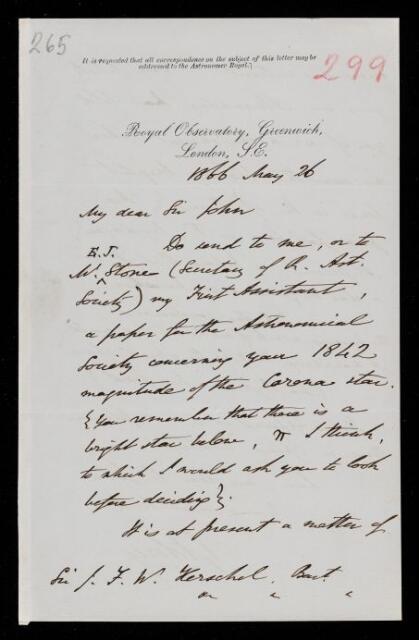 265
299
It is requested that all correspondence on the subject of this letter may be
addressed to the Astronomer Royal.
Royal Observatory, Greenwich,
London, S.E.
1866 May 26
My dear Sir John
Do send to me, or to
E. J.
Mr. Stone (Secretary of R. Ast.
Society) my First Assistant,
a paper for the Astronomical
Society concerning your 1842
magnitude of the Corona star.
{You remember that there is a
bright star below, π I think,
to which I would ask you to look
before deciding}.
It is at present a matter of
Sir J. F. W. Herschel, Bart.